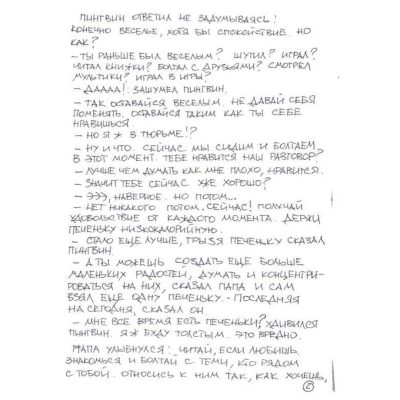 ПИНГВИН ОТВЕТИЛ НЕ ЗАДУМЫВАЯСЬ!
КОНЕЧНО ВЕСЕЛЬЕ, ХОТЯ БЫ СПОКОЙСТВИЕ. НО
КАК?
- ТЫ РАНЬШЕ БЫЛ ВЕСЕЛЫМ? ШУТИЛ? ИГРАЛ?
ЧИТАЛ КНИЖКИ? БОЛТАЛ С ДРУЗЬЯМИ? СМОТРЕЛ
МУЛЬТИКИ? ИГРАЛ В ИГРЫ?
- ДАААА! ЗАШУМЕЛ ПИНГВИН.
- ТАК ОСТАВАЙСЯ ВЕСЕЛЫМ. НЕ ДАВАЙ СЕБЯ
ПОМЕНЯТЬ. ОСТАВАЙСЯ ТАКИМ КАК ТЫ СЕБЕ
НРАВИШЬСЯ.
- НО Я Ж В ТЮРЬМЕ!?
- НУ И ЧТО. СЕЙЧАС МЫ СИДИМ И БОЛТАЕМ
В ЭТОТ МОМЕНТ. ТЕБЕ НРАВИТСЯ НАШ РАЗГОВОР?
- ЛУЧШЕ ЧЕМ ДУМАТЬ КАК МНЕ ПЛОХО, НРАВИТСЯ.
- ЗНАЧИТ ТЕБЕ СЕЙЧАС УЖЕ ХОРОШО?
- ЭЭЭ, НАВЕРНОЕ. НО ПОТОМ...
- НЕТ НИКАКОГО ПОТОМ. СЕЙЧАС! ПОЛУЧАЙ
УДОВОЛЬСТВИЕ ОТ КАЖДОГО МОМЕНТА. ДЕРЖИ
ПЕЧЕНЬКУ НИЗКОКАЛОРИЙНУЮ.
- СТАЛО ЕЩЕ ЛУЧШЕ, ГРЫЗЯ ПЕЧЕНЬКУ СКАЗАЛ
ПИНГВИН
- А ТЫ МОЖЕШЬ СОЗДАТЬ ЕЩЕ БОЛЬШЕ
МАЛЕНЬКИХ РАДОСТЕЙ, ДУМАТЬ И КОНЦЕНТРИ-
РОВАТЬСЯ НА НИХ, СКАЗАЛ ПАПА И САМ
ВЗЯЛ ЕЩЕ ОДНУ ПЕЧЕНЬКУ. - ПОСЛЕДНЯЯ
НА СЕГОДНЯ, СКАЗАЛ ОН
- МНЕ ВСЕ ВРЕМЯ ЕСТЬ ПЕЧЕНЬКИ? УДИВИЛСЯ
ПИНГВИН. Я Ж БУДУ ТОЛСТЫМ. ЭТО ВРЕДНО.
ПАПА УЛЫБНУЛСЯ: ЧИТАЙ, ЕСЛИ ЛЮБИШЬ.
ЗНАКОМЬСЯ И БОЛТАЙ С ТЕМИ, КТО РЯДОМ
С ТОБОЙ. ОТНОСИСЬ К НИМ ТАК, КАК ХОЧЕШЬ,
2